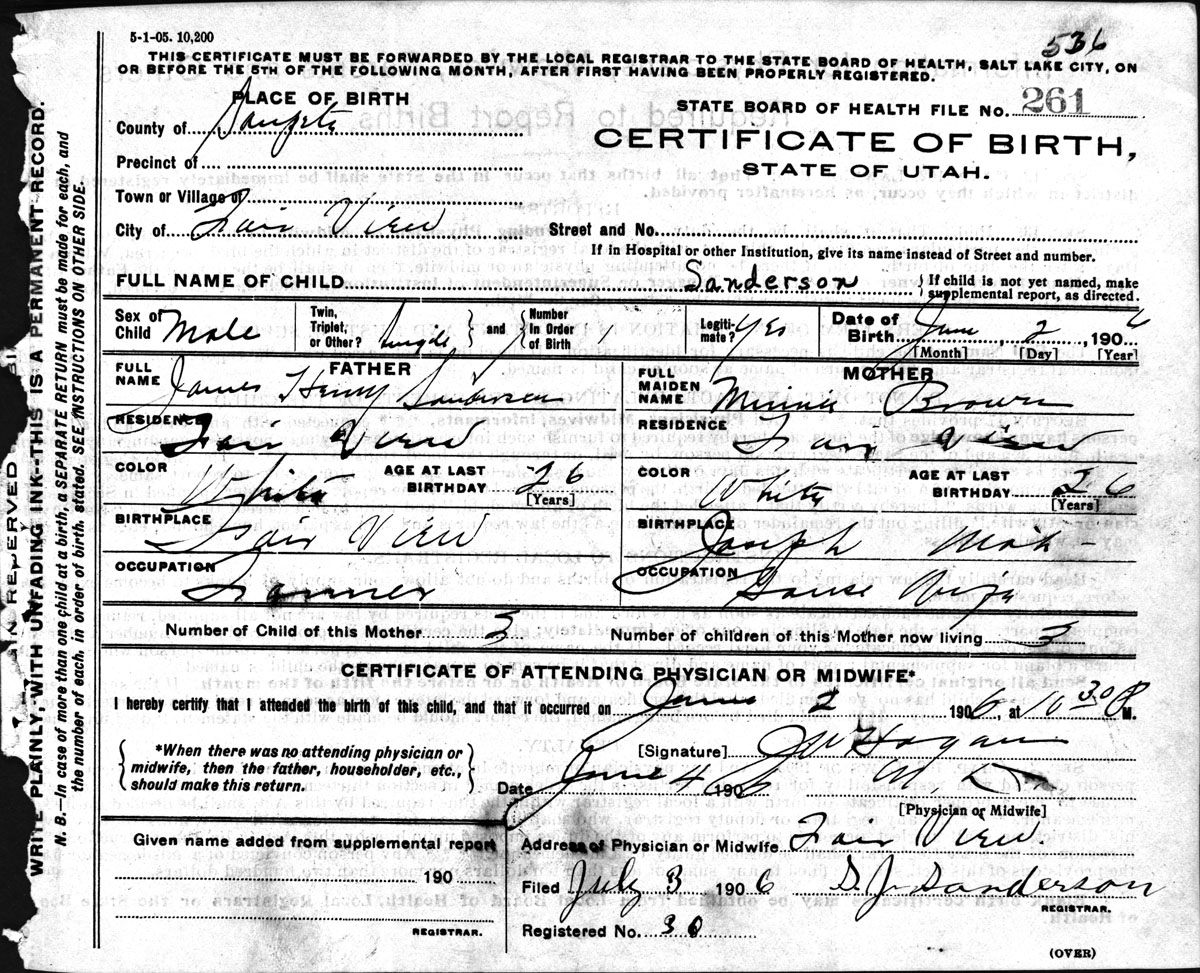 5-1-05. 10,200
536
THIS CERTIFICATE MUST BE FORWARDED BY THE LOCAL REGISTRAR TO THE STATE BOARD OF HEALTH, SALT LAKE CITY, ON
OR BEFORE THE 5TH OF THE FOLLOWING MONTH, AFTER FIRST HAVING BEEN PROPERLY REGISTERED.
PLACE OF BIRTH
STATE BOARD OF HEALTH FILE No. 261
County of Sanpete
CERTIFICATE OF BIRTH,
Precinct of
STATE OF UTAH.
Town or Village of
City of Fair View Street and No.
If in Hospital or other Institution, give its name instead of Street and number.
FULL NAME OF CHILD Sanderson { If child is not yet named, make supplemental report, as directed.
Sex of Child Male Twin, Triplet, or Other? Single } and { Number In Order of Birth Legiti- mate? Yes Date of Birth June 2, 1906
[Month] [Day] [Year]
FATHER
FULL NAME James Henry Sanderson
RESIDENCE Fair View
COLOR White AGE AT LAST BIRTHDAY 26 [Years]
BIRTHPLACE Fair View
OCCUPATION Farmer
MOTHER
FULL MAIDEN NAME Minnie Brown
RESIDENCE Fair View
COLOR White AGE AT LAST BIRTHDAY 26 [Years]
BIRTHPLACE Joseph
OCCUPATION House Wife
Number of Child of this Mother 3 Number of children of this Mother now living 3
CERTIFICATE OF ATTENDING PHYSICIAN OR MIDWIFE*
I hereby certify that I attended the birth of this child, and that it occurred on June 2 1906, at 10 30 P M.
{ *When there was no attending physician or midwife, then the father, householder, etc., should make this return. }
[Signature] Hogan
Date June 4 1906 M D
[Physician or Midwife]
Given name added from supplemental report
190
REGISTRAR.
Address of Physician or Midwife Fair View.
Filed July 3 1906 Sanderson
REGISTRAR.
Registered No. 30
(OVER)
WRITE PLAINLY WITH UNFADING INK—THIS IS A PERMANENT RECORD.
N. B.—In case of more than one child at a birth, a SEPARATE RETURN must be made for each, and
the number of each, in order of birth, stated. SEE INSTRUCTIONS ON OTHER SIDE.